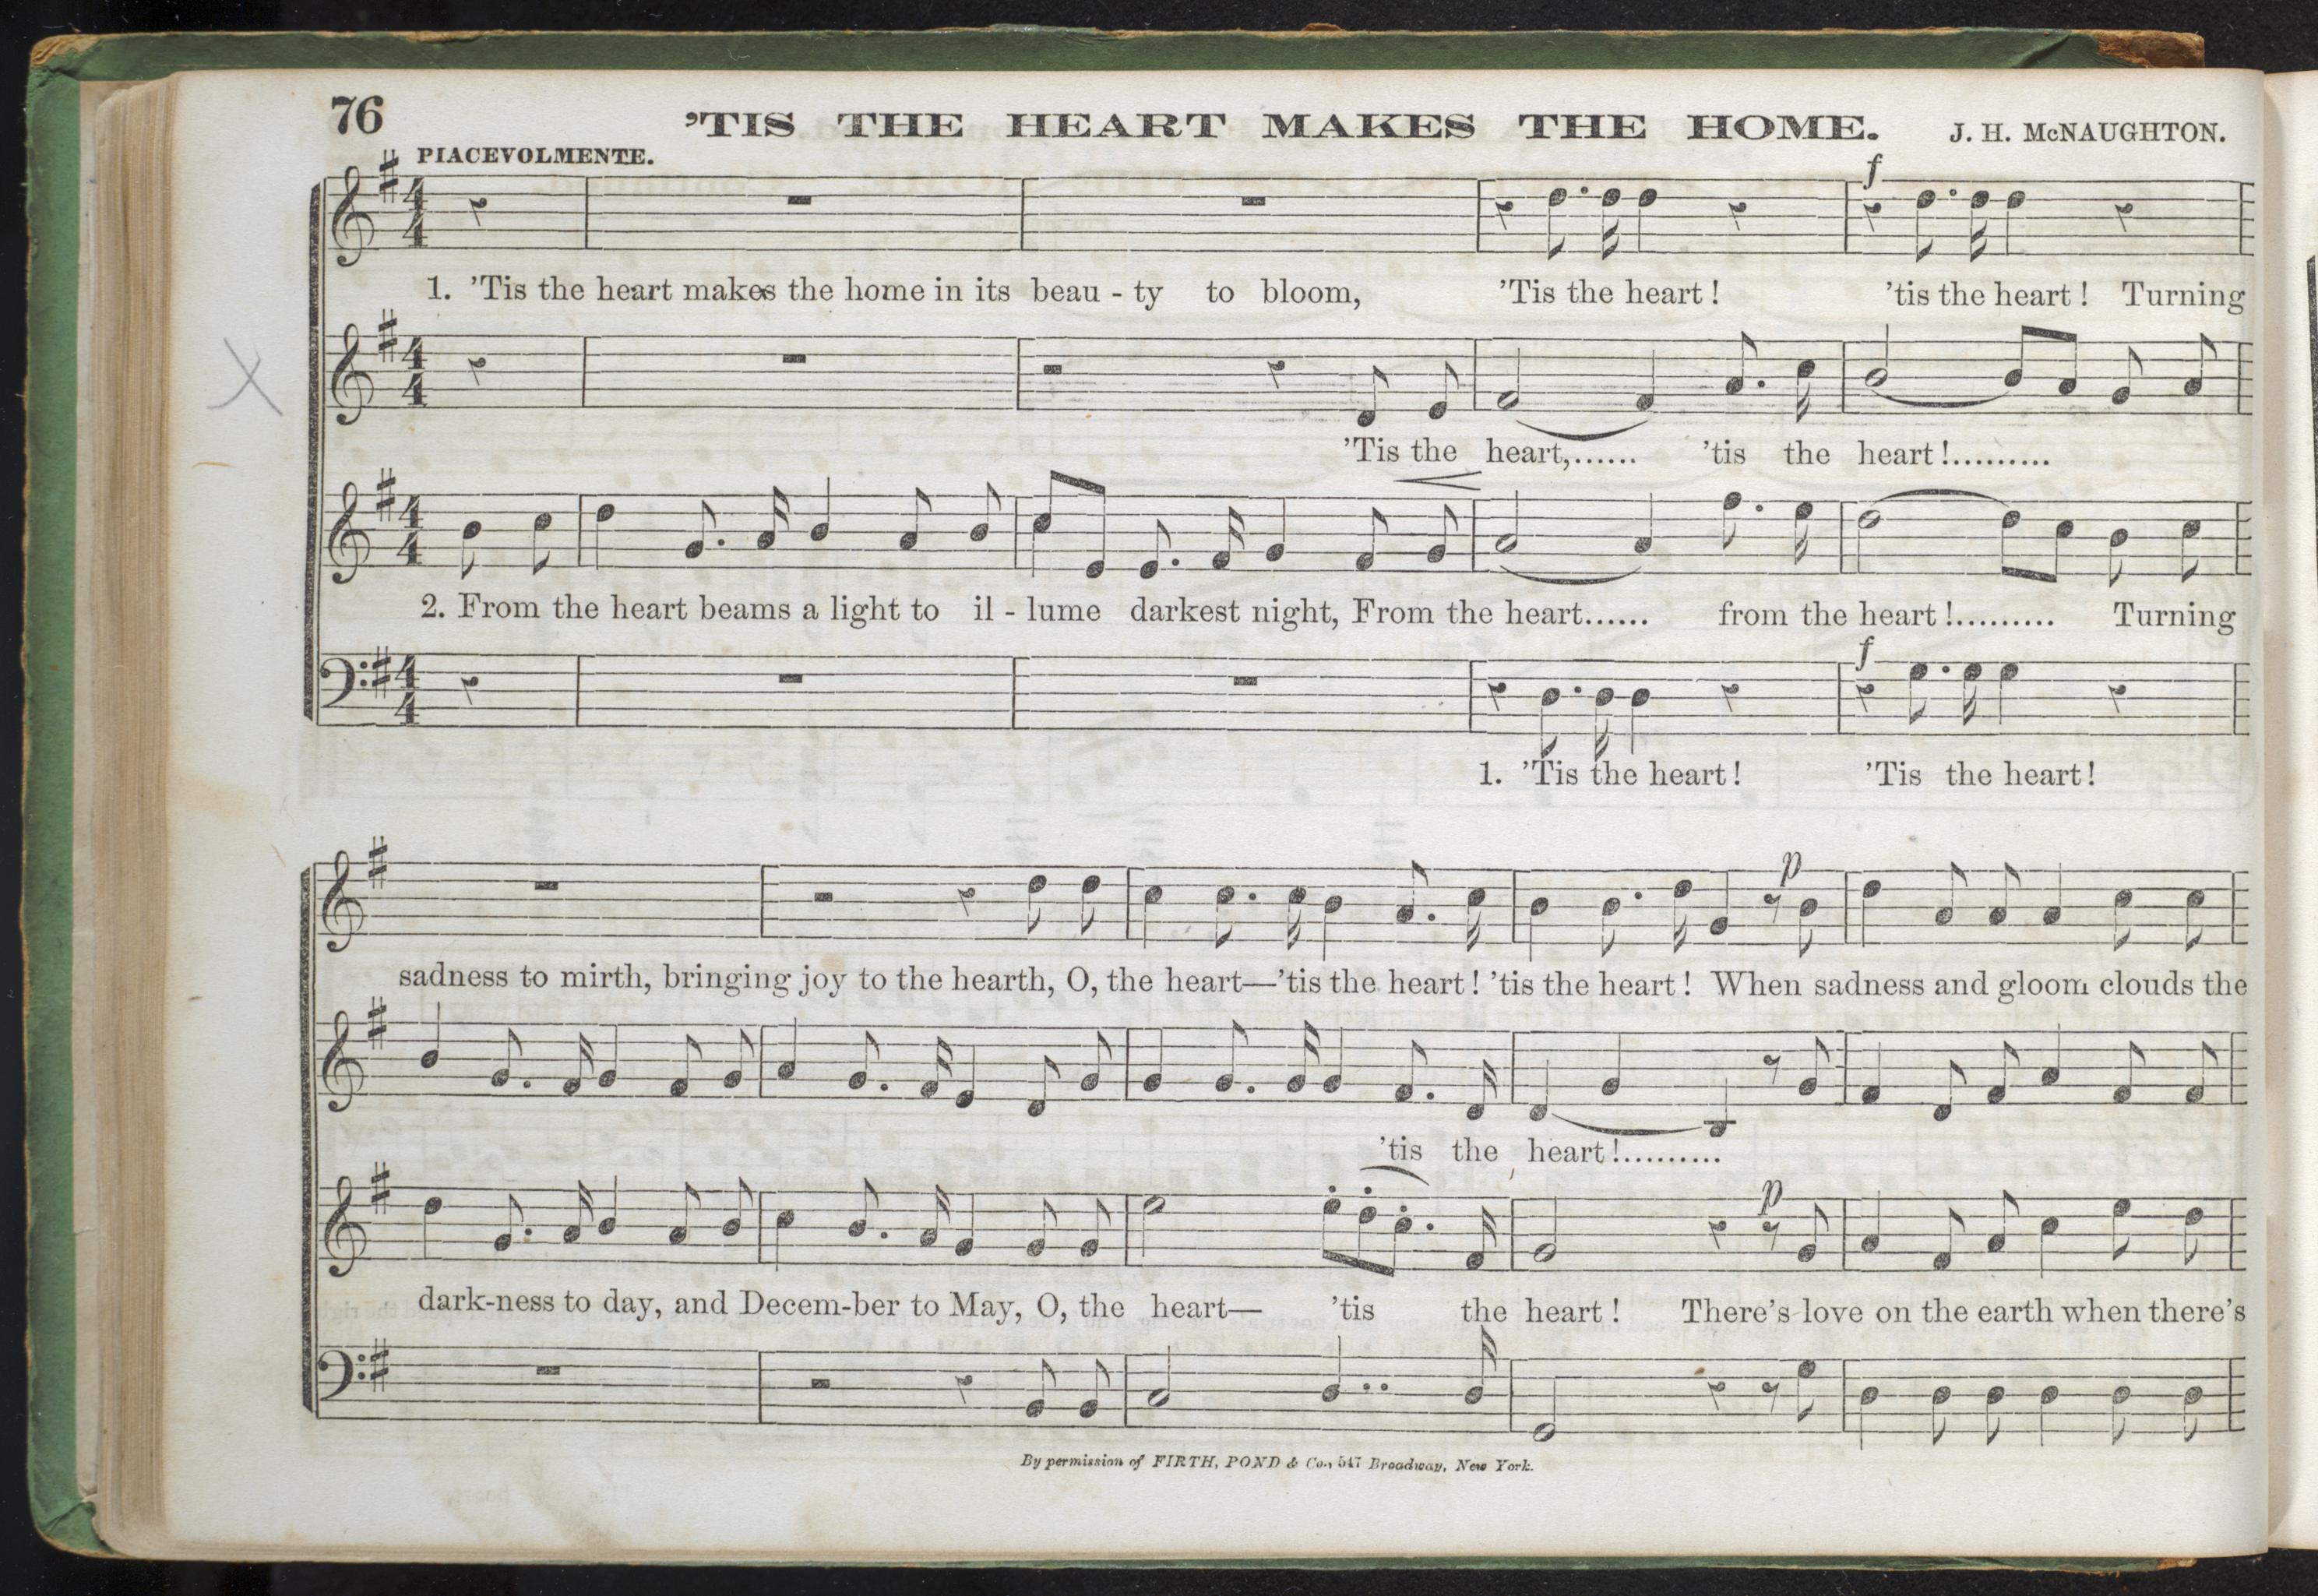 76
'TIS THE HEART MAKES THE HOME.
J. H. McNAUGHTON.
PIACEVOLMENTE.
f
1. 'Tis the heart makes the home in its beau - ty to bloom, 'Tis the heart! 'tis the heart! Turning
'Tis the heart,...... 'tis the heart!.........
2. From the heart beams a light to il - lume darkest night, From the heart...... from the heart!......... Turning
f
1. 'Tis the heart! 'Tis the heart!
p
sadness to mirth, bringing joy to the hearth, O, the heart—'tis the heart! 'tis the heart! When sadness and gloom clouds the
'tis the heart!.........
p
dark-ness to day, and Decem-ber to May, O, the heart— 'tis the heart! There's love on the earth when there's
By permission of FIRTH, POND & Co., 547 Broadway, New York.